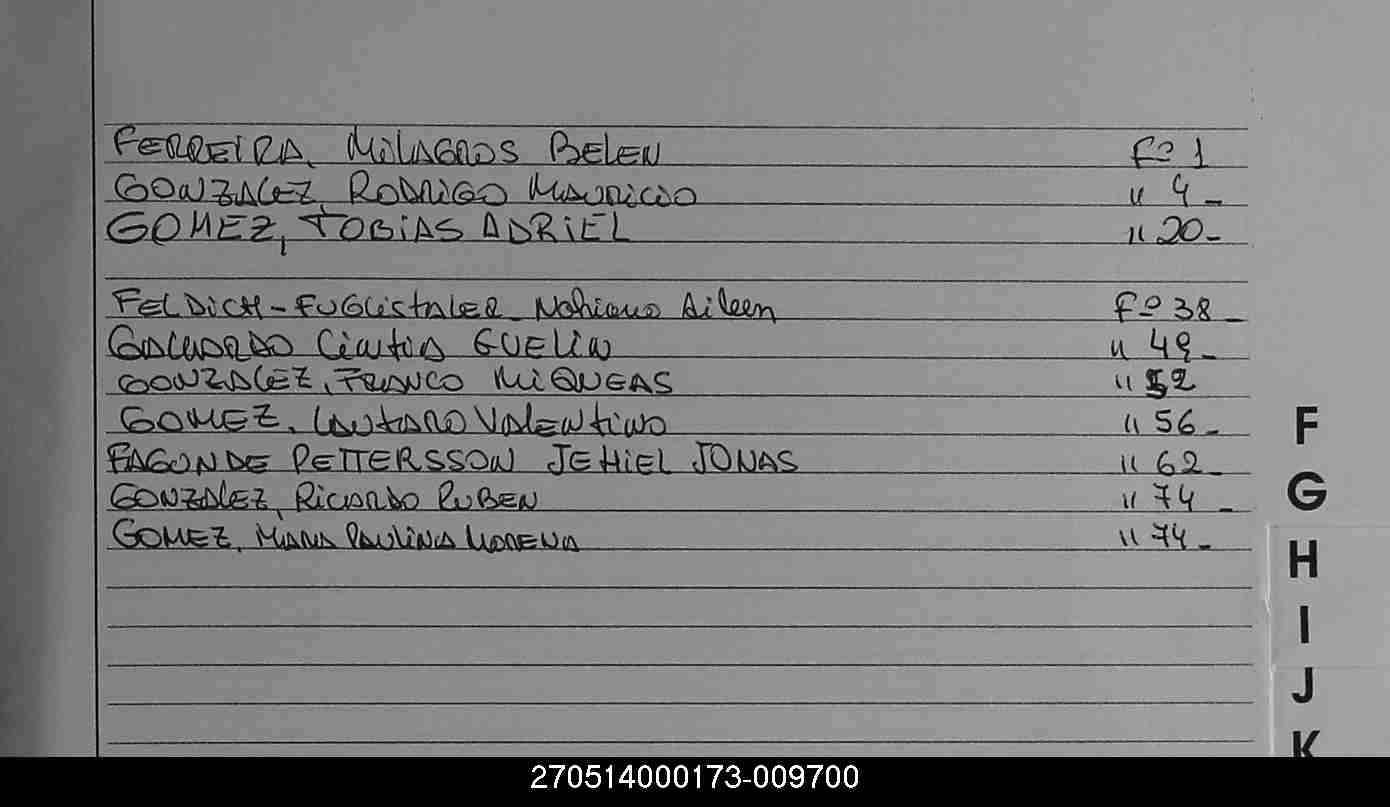 FERREIRA, MILAGROS BELEN Fº 1
GONZALEZ, RODRIGO MAURICIO " 4_
GOMEZ, TOBIAS ADRIEL " 20_
FELDICH-FUGLISTALER_ Nahiara Aileen Fº 38_
GALLARDO Cintia EVELIN " 49_
GONZALEZ, FRANCO MIQUEAS " 52
GOMEZ, LAUTARO VALENTINO " 56_
FAGUNDE PETTERSSON JEHIEL JONAS " 62_
GONZALEZ, RICARDO RUBEN " 74_
GOMEZ, MARIA PAULINA MORENA " 74_
F
G
H
I
J
K
270514000173-009700